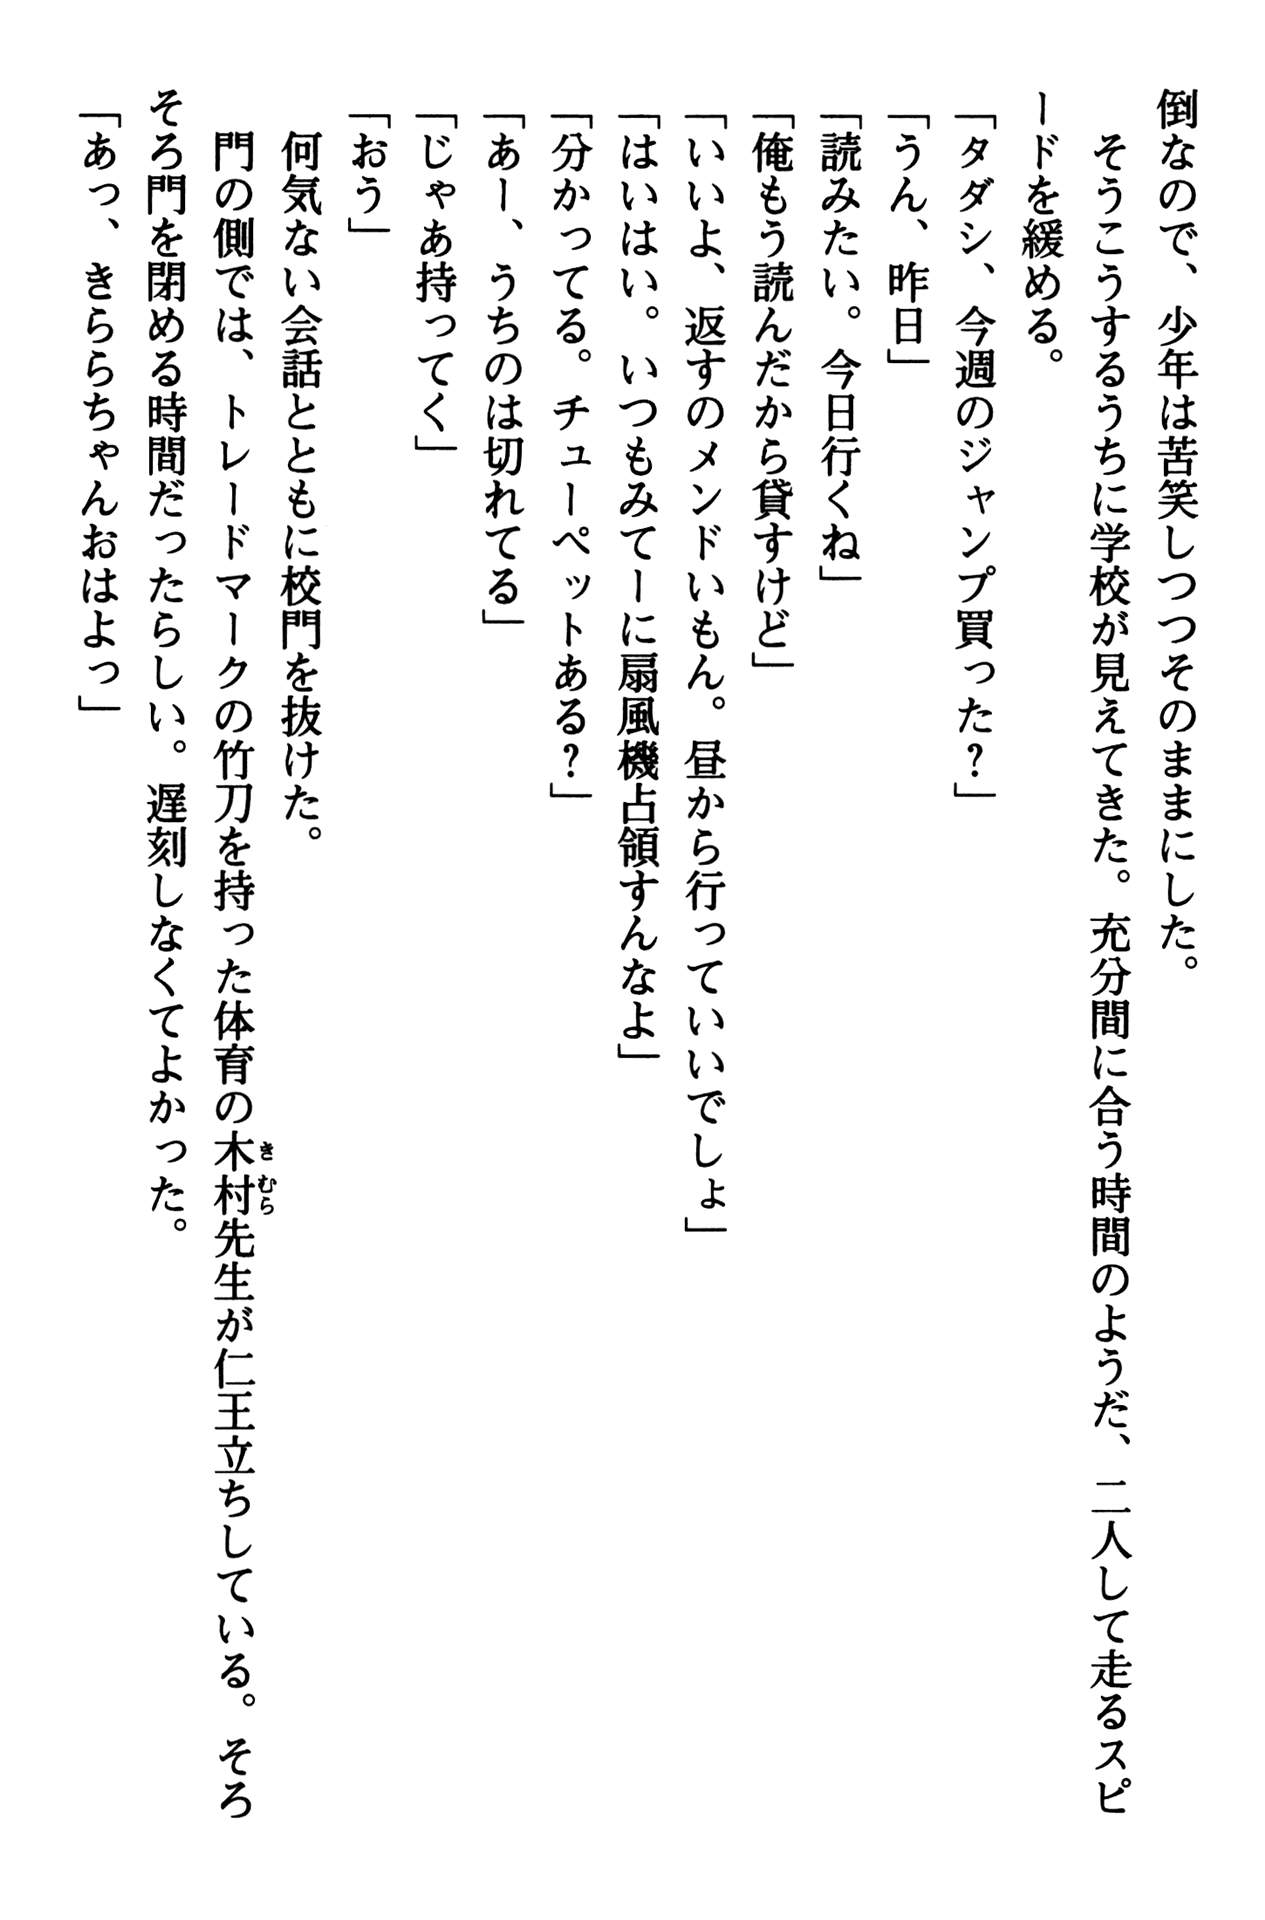 倒なので、少年は苦笑しつつそのままにした。
そうこうするうちに学校が見えてきた。充分間に合う時間のようだ、二人して走るスピ
ードを緩める。
「タダシ、今週のジャンプ買った？」
「うん、昨日」
「読みたい。今日行くね」
「俺もう読んだから貸すけど」
「いいよ、返すのメンドいもん。昼から行っていいでしょ」
「はいはい。いつもみてーに扇風機占領すんなよ」
「分かってる。チューペットある？」
「あー、うちのは切れてる」
「じゃあ持ってく」
「おう」
何気ない会話とともに校門を抜けた。
門の側では、トレードマークの竹刀を持った体育の木村先生が仁王立ちしている。そろ
きむら
そろ門を閉める時間だったらしい。遅刻しなくてよかった。
「あっ、きららちゃんおはよっ」